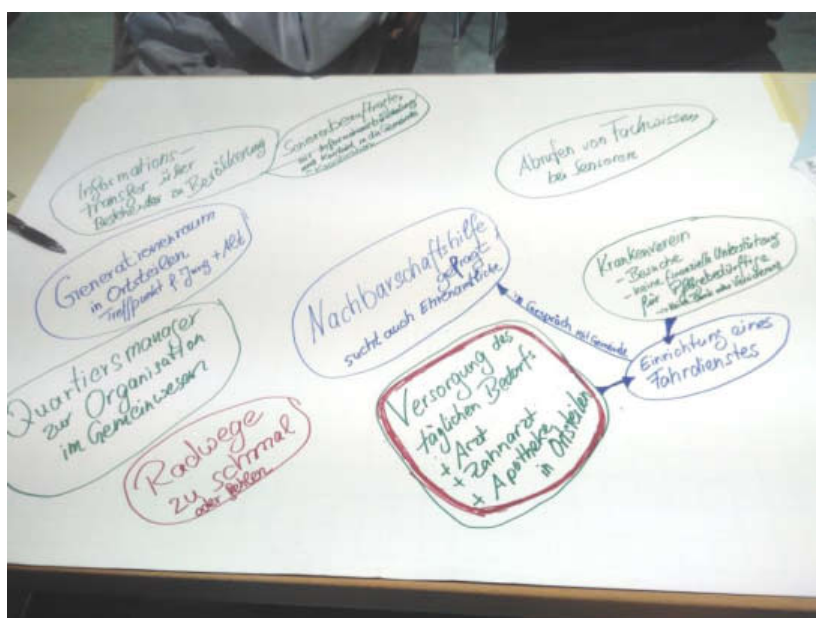 Informations-
transfer über
Bestehendes zu Bevölkerung
Seniorenbeauftragter
zur Informationsübermittlung
und Kontakt in die Gemeinde
Abrufen von Fachwissen
bei Senioren
Generationenraum
in Ortsteilen
Treffpunkt f. Jung + Alt
Nachbarschaftshilfe
gefragt
sucht auch Ehrenamtliche
Krankenverein
- Besuche
- keine finanzielle Unterstützung
für Pflegebedürftige
im Gespräch mit Gemeinde
Einrichtung eines
Fahrdienstes
Quartiersmanager
zur Organisation
im Gemeinwesen
Versorgung des
täglichen Bedarfs
+ Arzt
+ Zahnarzt
+ Apotheke
in Ortsteilen
Radwege
zu schmal
oder fehlen